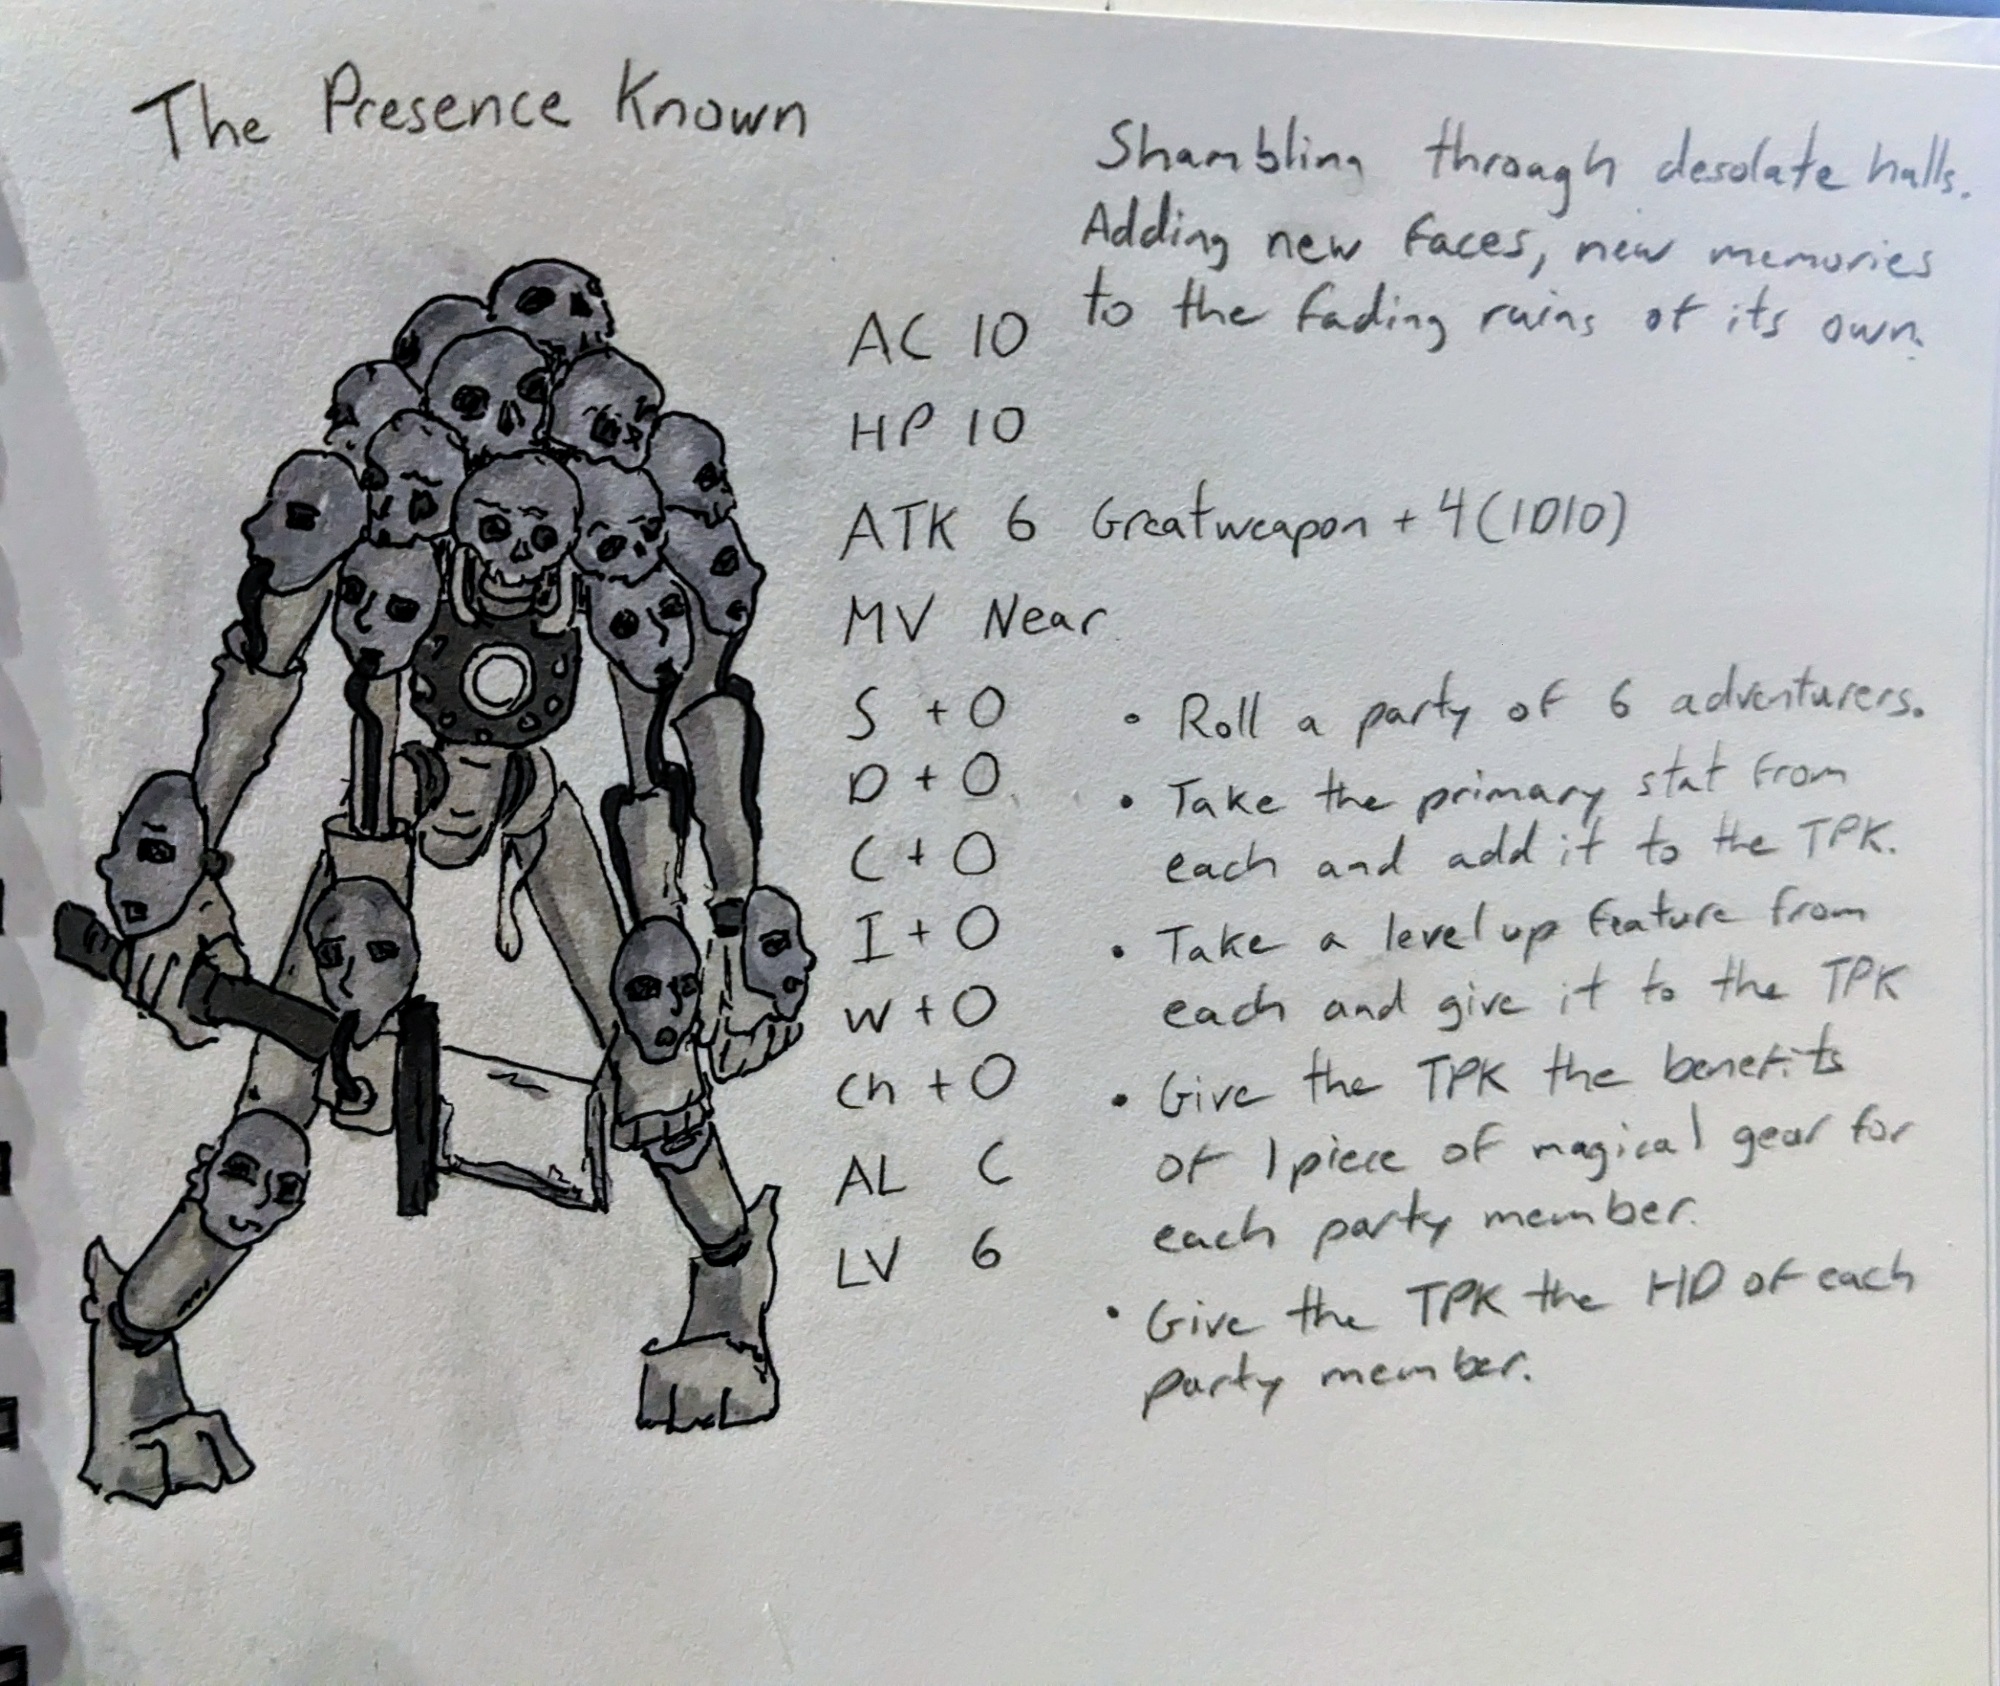 The Presence Known
Shambling through desolate halls.
Adding new faces, new memories
to the fading ruins of its own.
AC 10
HP 10
ATK 6 Greatweapon + 4 (1D10)
MV Near
S + 0
D + 0
C + 0
I + 0
W + 0
Ch + 0
AL C
LV 6
• Roll a party of 6 adventurers.
• Take the primary stat from
each and add it to the TPK.
• Take a level up feature from
each and give it to the TPK
• Give the TPK the benefits
of 1 piece of magical gear for
each party member.
• Give the TPK the HD of each
party member.